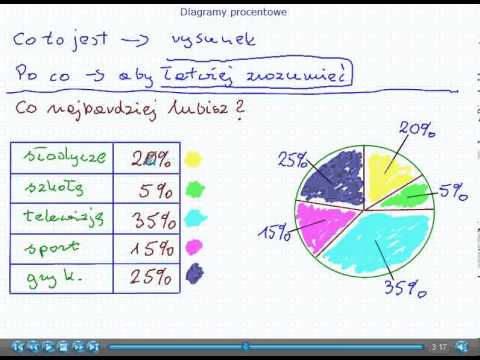 Diagramy procentowe
Co to jest → rysunek
Po co → aby łatwiej zrozumieć
Co najbardziej lubisz?
słodycze 20%
szkołę 5%
telewizję 35%
sport 15%
gry k. 25%
20%
25%
5%
15%
35%
3:17